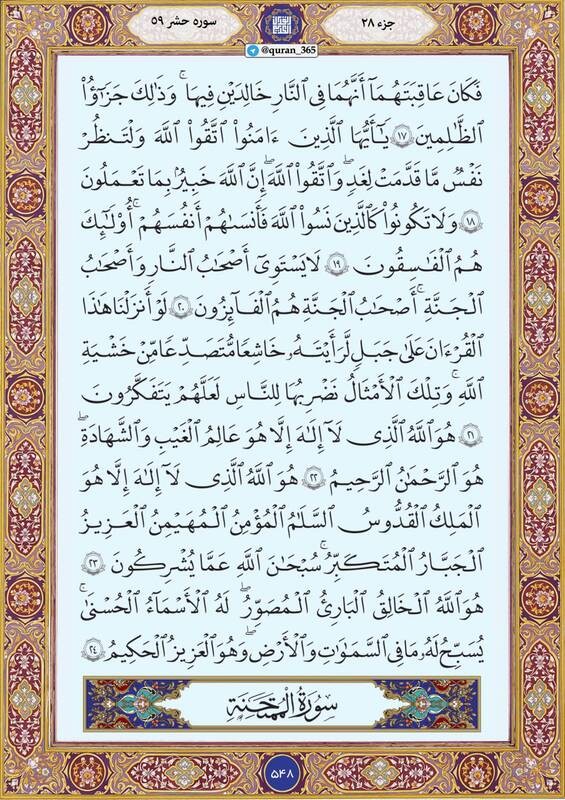 جزء ۲۸
سوره حشر ۵۹
@quran_365
فَكَانَ عَاقِبَتَهُمَآ أَنَّهُمَا فِي النَّارِ خَالِدَيْنِ فِيهَا ۚ وَذَٰلِكَ جَزَٰٓؤُا۟
الظَّٰلِمِينَ ١٧ يَٰٓأَيُّهَا الَّذِينَ ءَامَنُوا۟ اتَّقُوا۟ اللَّهَ وَلْتَنظُرْ
نَفْسٌ مَّا قَدَّمَتْ لِغَدٍ ۖ وَاتَّقُوا۟ اللَّهَ ۚ إِنَّ اللَّهَ خَبِيرٌۢ بِمَا تَعْمَلُونَ
١٨ وَلَا تَكُونُوا۟ كَالَّذِينَ نَسُوا۟ اللَّهَ فَأَنسَىٰهُمْ أَنفُسَهُمْ ۚ أُو۟لَٰٓئِكَ
هُمُ الْفَٰسِقُونَ ١٩ لَا يَسْتَوِىٓ أَصْحَٰبُ النَّارِ وَأَصْحَٰبُ
الْجَنَّةِ ۚ أَصْحَٰبُ الْجَنَّةِ هُمُ الْفَآئِزُونَ ٢٠ لَوْ أَنزَلْنَا هَٰذَا
الْقُرْءَانَ عَلَىٰ جَبَلٍ لَّرَأَيْتَهُۥ خَاشِعًا مُّتَصَدِّعًا مِّنْ خَشْيَةِ
اللَّهِ ۚ وَتِلْكَ الْأَمْثَٰلُ نَضْرِبُهَا لِلنَّاسِ لَعَلَّهُمْ يَتَفَكَّرُونَ
٢١ هُوَ اللَّهُ الَّذِى لَآ إِلَٰهَ إِلَّا هُوَ ۖ عَالِمُ الْغَيْبِ وَالشَّهَٰدَةِ ۖ
هُوَ الرَّحْمَٰنُ الرَّحِيمُ ٢٢ هُوَ اللَّهُ الَّذِى لَآ إِلَٰهَ إِلَّا هُوَ
الْمَلِكُ الْقُدُّوسُ السَّلَٰمُ الْمُؤْمِنُ الْمُهَيْمِنُ الْعَزِيزُ
الْجَبَّارُ الْمُتَكَبِّرُ ۚ سُبْحَٰنَ اللَّهِ عَمَّا يُشْرِكُونَ ٢٣
هُوَ اللَّهُ الْخَٰلِقُ الْبَارِئُ الْمُصَوِّرُ ۖ لَهُ الْأَسْمَآءُ الْحُسْنَىٰ ۚ
يُسَبِّحُ لَهُۥ مَا فِى السَّمَٰوَٰتِ وَالْأَرْضِ ۖ وَهُوَ الْعَزِيزُ الْحَكِيمُ ٢٤
سُورَةُ الْمُمْتَحَنَةِ
۵۴۸